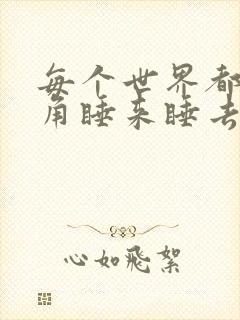 每个世界都
角睡来睡去
心如飞絮